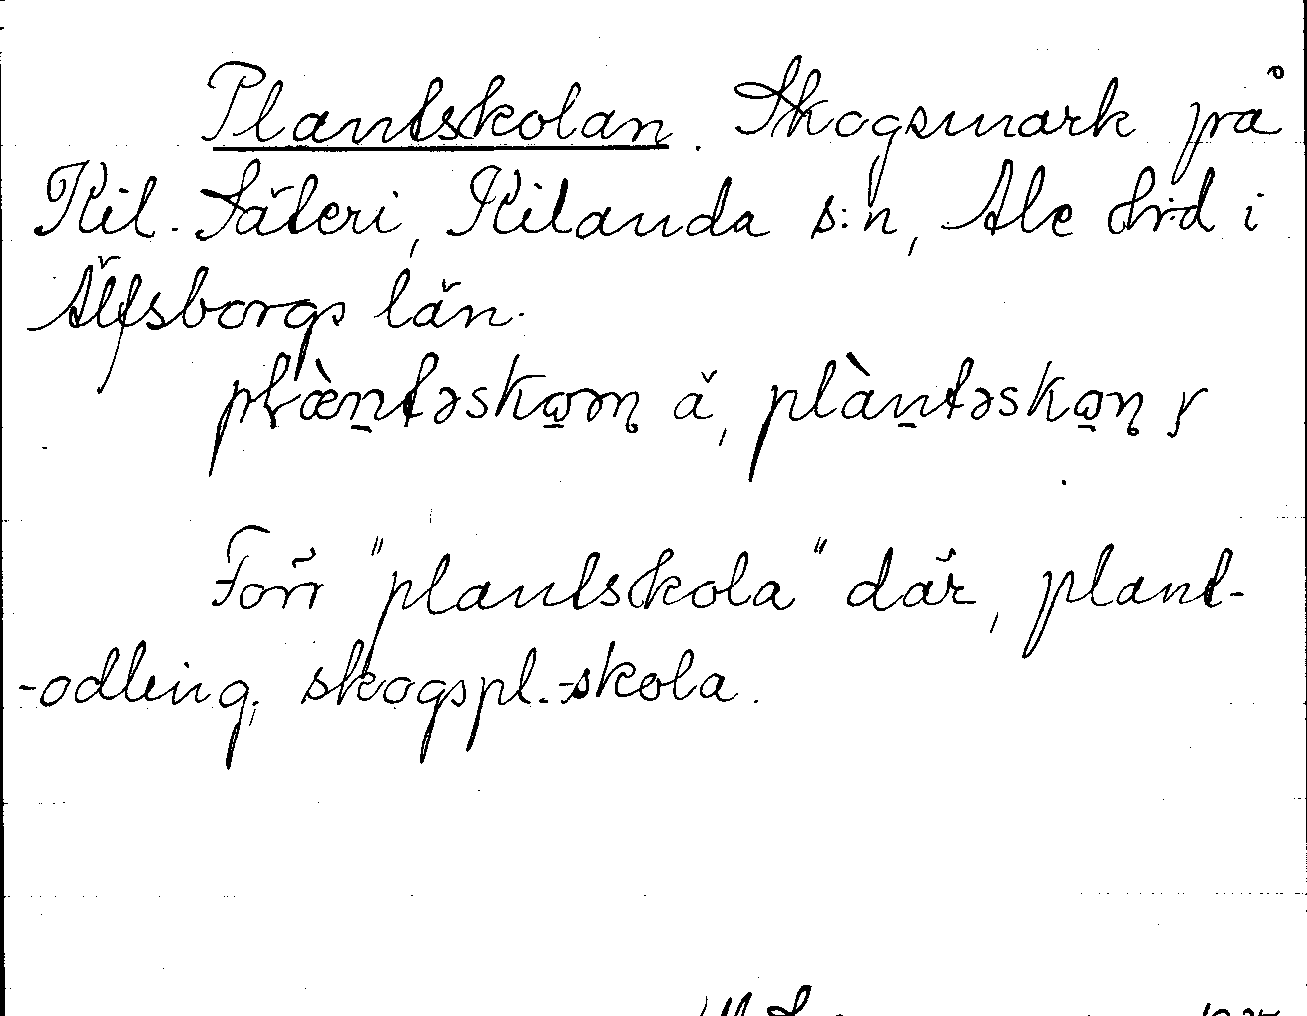 Plantskolan. Skogsmark på
Kil. Säteri, Kilanda s:n, Ale hrd i
Älfsborgs län.
plæ̀ntəskɷəɳ ä, plàntəskɷɳ y
Förr "plantskola" där, plant-
-odling, skogspl.-skola.